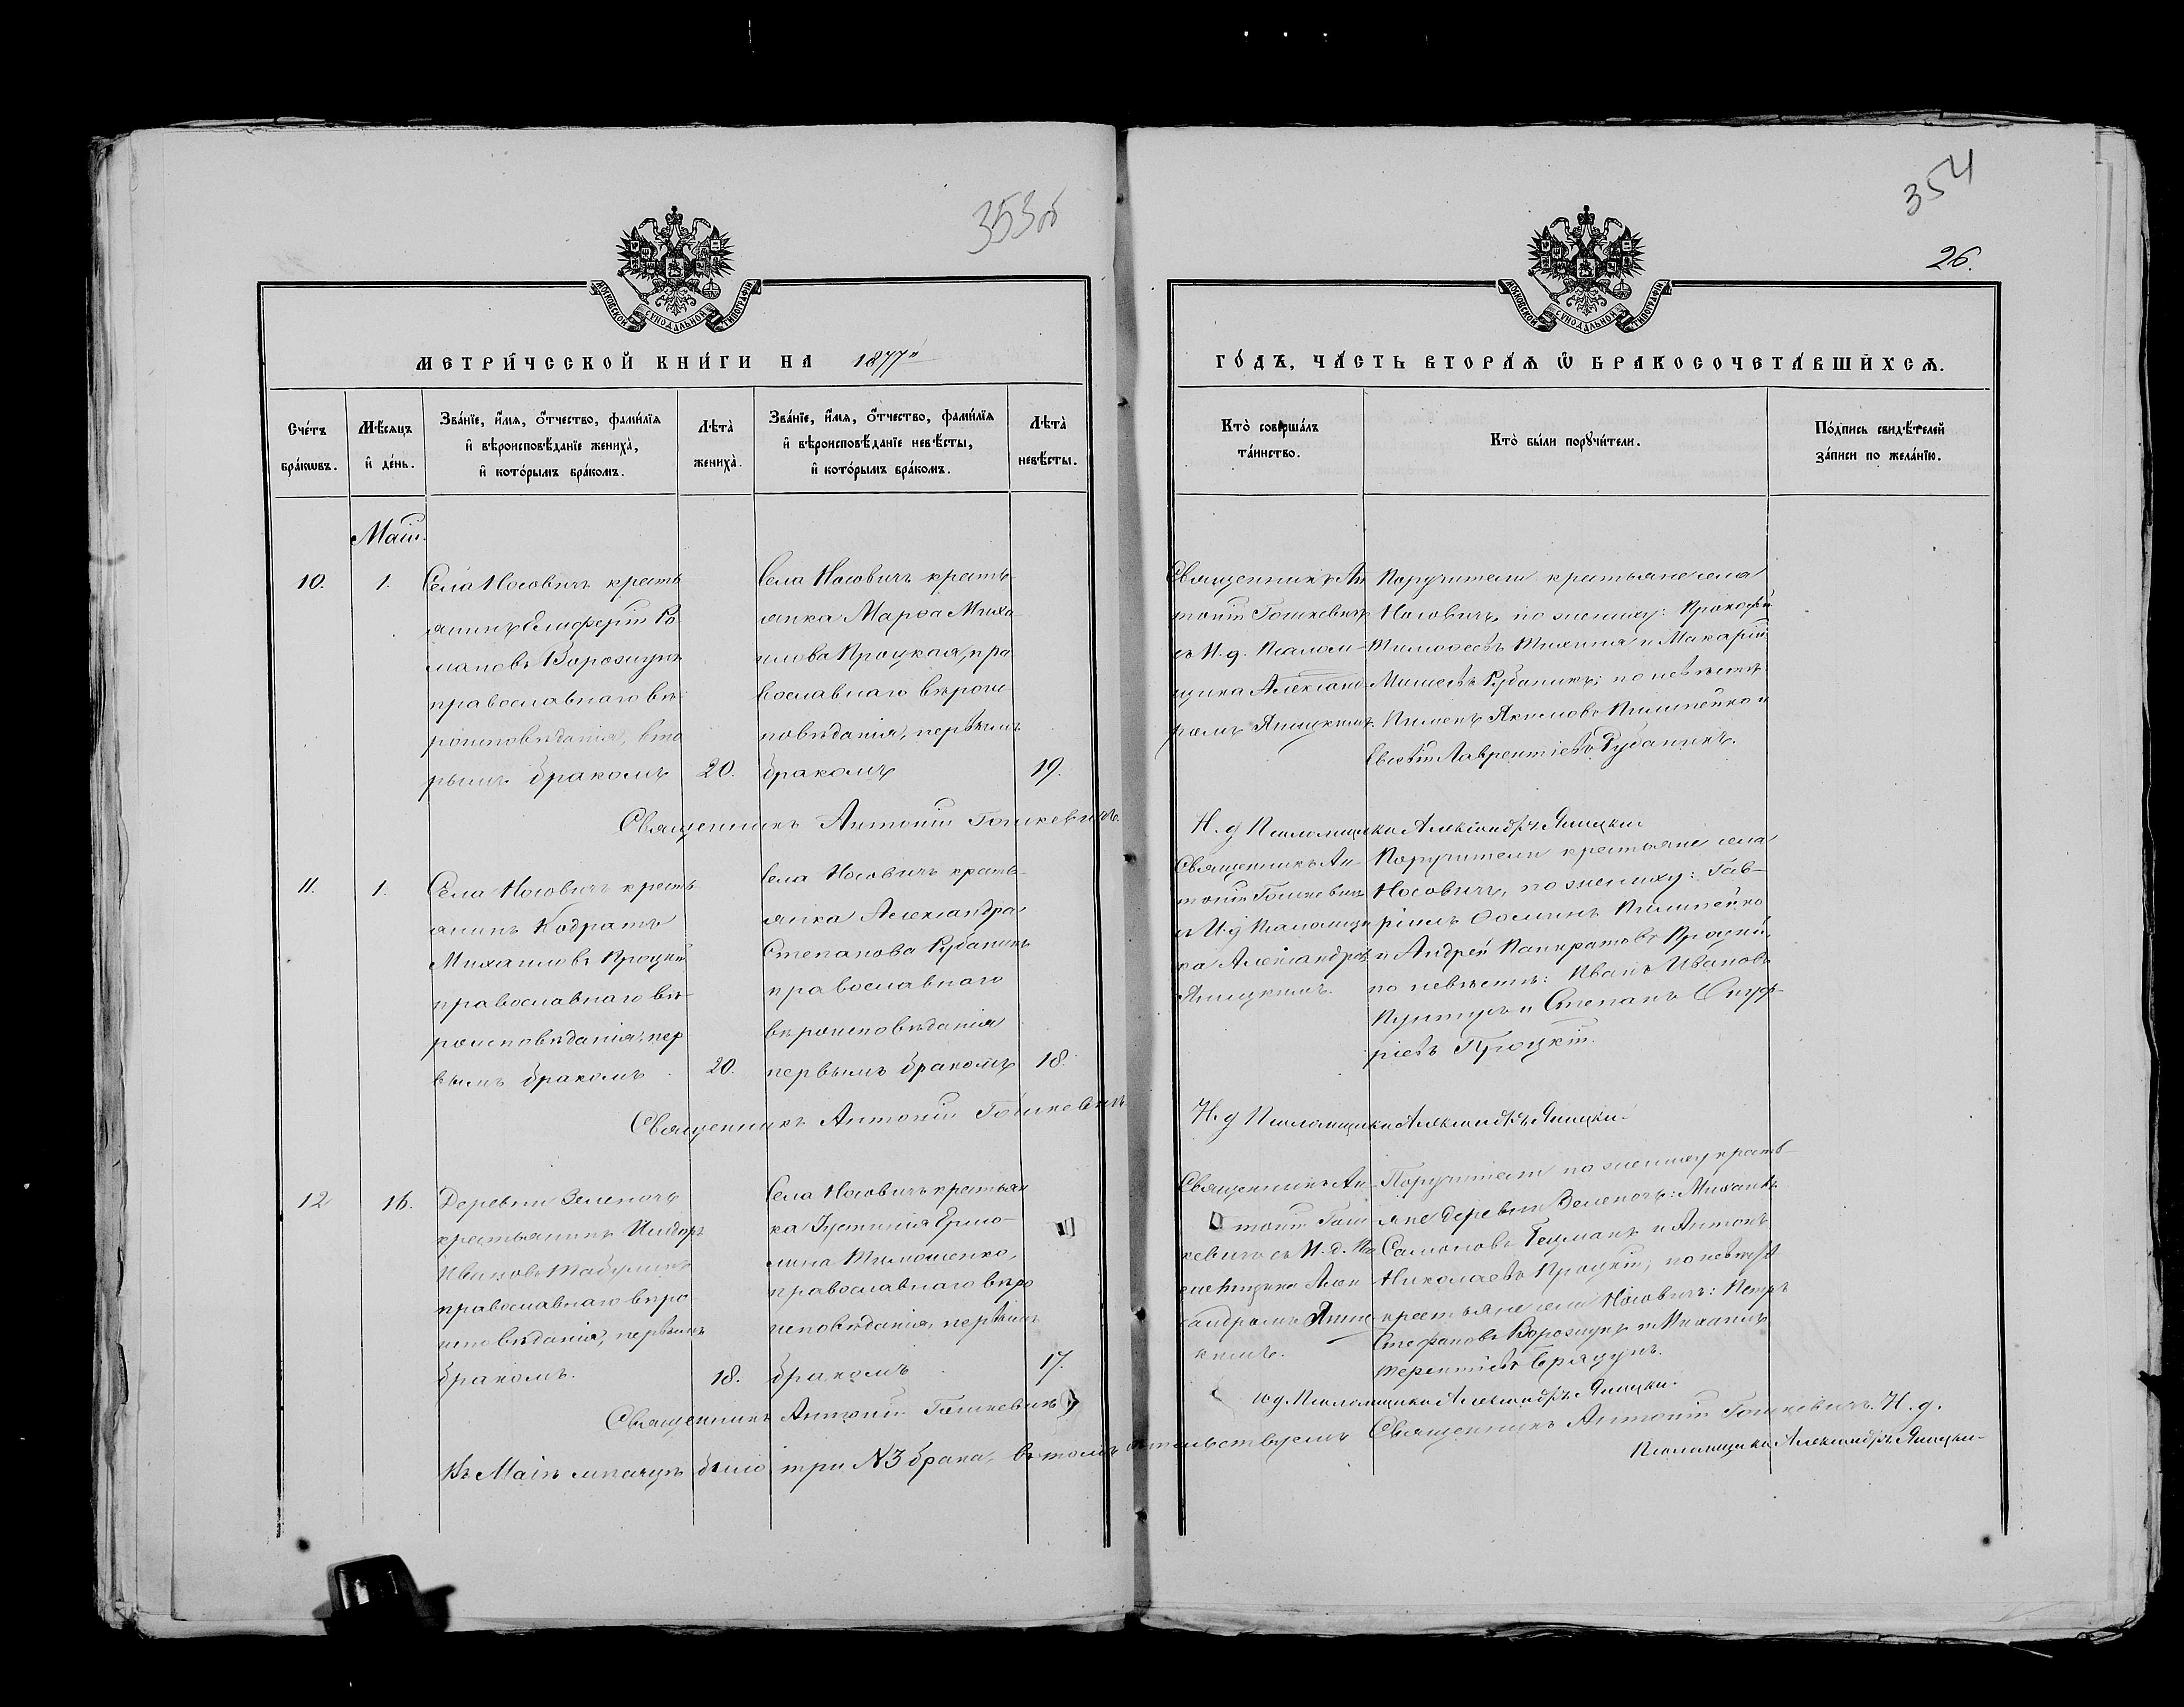 353об
354
26.
МОСКОВСКОЙ СѴНОДАЛЬНОЙ ТИПОГРАФІИ
МОСКОВСКОЙ СѴНОДАЛЬНОЙ ТИПОГРАФІИ
МЕТРИ́ЧЕСКОЙ КНИ́ГИ НА 1877й
ГО́ДЪ, ЧА́СТЬ ВТОРА́Я Ѽ БРАКОСОЧЕТА́ВШИХСЯ.
Сче́тъ
бра́кѡвъ.
Мѣ́сяцъ
и҆ де́нь.
Зва́нїе, и҆́мя, о҆́тчество, фами́лїя
и҆ вѣроисповѣ́данїе жениха̀,
и҆ кото́рымъ бра́комъ.
Лѣта̀
жениха̀.
Зва́нїе, и҆́мя, о҆́тчество, фами́лїя
и҆ вѣроисповѣ́данїе невѣ́сты,
и҆ кото́рымъ бра́комъ.
Лѣта̀
невѣ́сты.
Кто̀ соверша́лъ
та́инство.
Кто̀ бы́ли порꙋчи́тели.
По́дпись свидѣ́телей
за́писи по жела́нїю.
Маій.
10.
1.
Села Носовичъ кресть
янинъ Елисферій Ро
мановъ Ворожунъ
православнаго вѣ-
роисповѣданія, вто
рымъ бракомъ
20.
Села Носовичъ кресть-
янка Марѳа Миха-
илова Процкая, пра
вославнаго вѣроис-
повѣданія, первымъ
бракомъ
19.
Священникъ Ан
тоній Гошкевичъ
съ И.д. Псалом-
щика Александ
ромъ Яницкимъ.
Поручители крестьяне села
Носовичъ, по жениху: Прокофій
Тимоѳеевъ и Макарій
Рубаникъ; по невѣстѣ:
Пименъ Акимовъ Пилипейко и
Евсевій Лаврентіевъ Рубаникъ.
Священникъ Антоній Гошкевичъ.
И.д Псаломщика Александръ Яницкій
11.
1.
Села Носовичъ кресть-
янинъ Кодратъ
Михаиловъ Процкій
православнаго вѣ-
роисповѣданія, пер
вымъ бракомъ
20.
Села Носовичъ кресть-
янка Александра
Степанова Рубаникъ
православнаго
вѣроисповѣданія
первымъ бракомъ
18.
Священникъ Ан-
тоній Гошкевичъ
и И.д Псаломщи
ка Александромъ
Яницкимъ.
Поручители крестьяне села
Носовичъ, по жениху: Гав-
ріилъ Ѳоминъ Пилипейко
и Андрей Панкратовъ Процкій,
по невѣстѣ: Иванъ Ивановъ
и Степанъ Онуф-
ріевъ Процкій.
Священникъ Антоній Гошкевичъ
И.д Псаломщика Александръ Яницкій
12
16.
Деревни Зеленочъ
крестьянинъ Исидоръ
Ивановъ
православнаго вѣро-
исповѣданія, первымъ
бракомъ.
18.
Села Носовичъ крестьян
ка Іустинія Ермо-
лина Тимошенко,
православнаго вѣро
исповѣданія, первымъ
бракомъ
17.
Священникъ Ан-
тоній Гош
кевичъ съ И.д. Пса
ломщика Алек
сандромъ Яниц
кимъ.
Поручители по жениху кресть-
яне деревни Зеленочъ: Михаилъ
Самсоновъ Гецманъ и Антонъ
Николаевъ Процкій; по невѣстѣ
крестьяне села Носовичъ: Петръ
Стефановъ Ворожунъ и Михаилъ
Терентіевъ
Священникъ Антоній Гошкевичъ
И.д. Псаломщика Александръ Яницкій.
Въ Маіѣ мѣсяцѣ было три №3 брака, въ томъ свидѣтельствуемъ Священникъ Антоній Гошкевичъ. И.д.
Псаломщика Александръ Яницкій